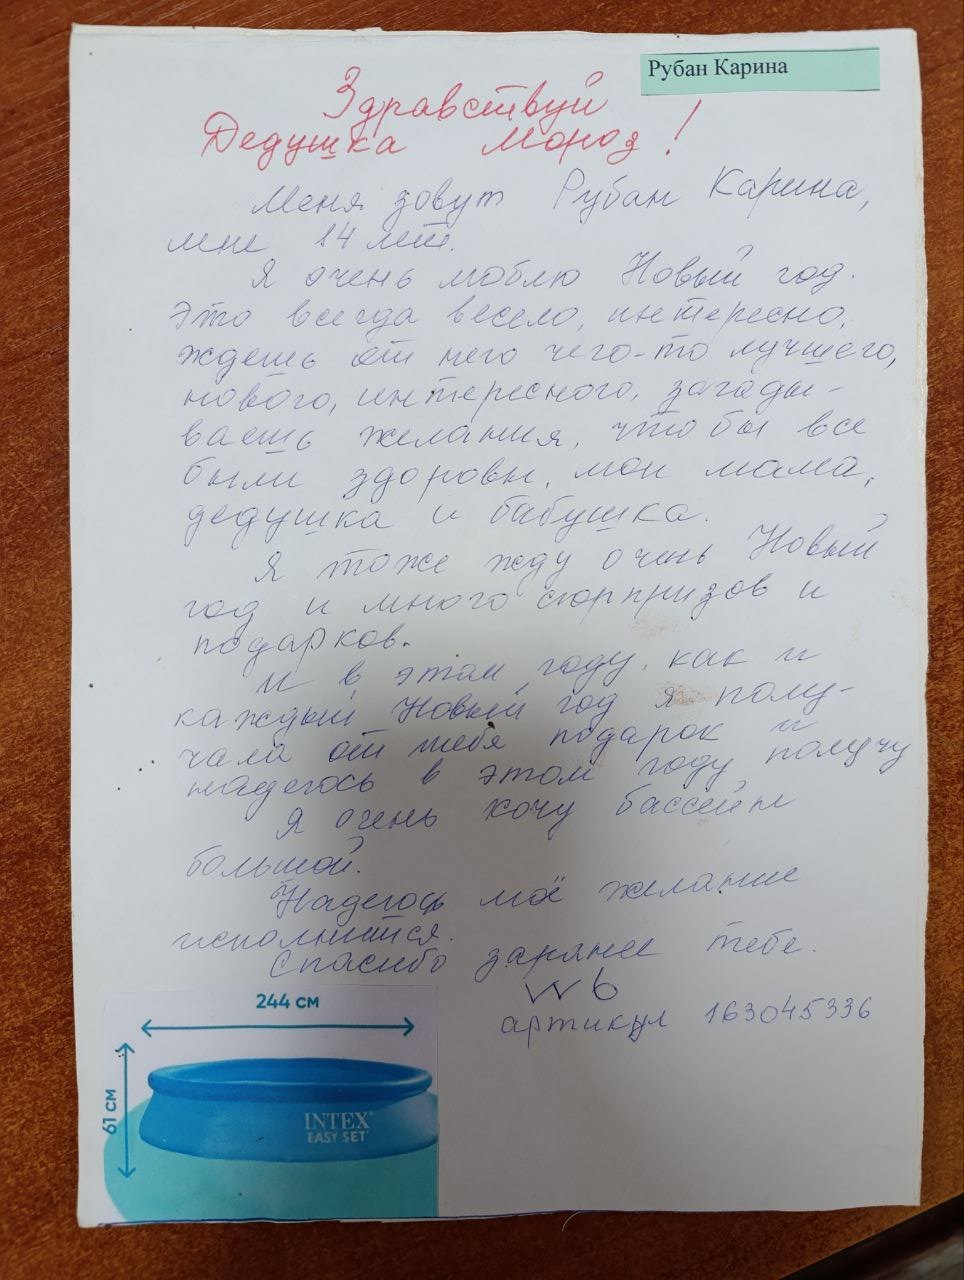 Рубан Карина
Здравствуй
Дедушка Мороз!
Меня зовут Рубан Карина,
мне 14 лет.
Я очень люблю Новый год.
Это всегда весело, интересно,
ждешь от него чего-то лучшего,
нового, интересного, загады-
ваешь желания, чтобы все
были здоровы, мои мама,
дедушка и бабушка.
Я тоже жду очень Новый
год и много сюрпризов и
подарков.
И в этом году, как и
каждый Новый год я полу-
чала от тебя подарок и
надеюсь в этом году получу
Я очень хочу бассейн
большой.
Надеюсь моё желание
исполнится.
Спасибо заранее тебе.
WB
артикул 163045336
244 СМ
61 СМ
INTEX
EASY SET